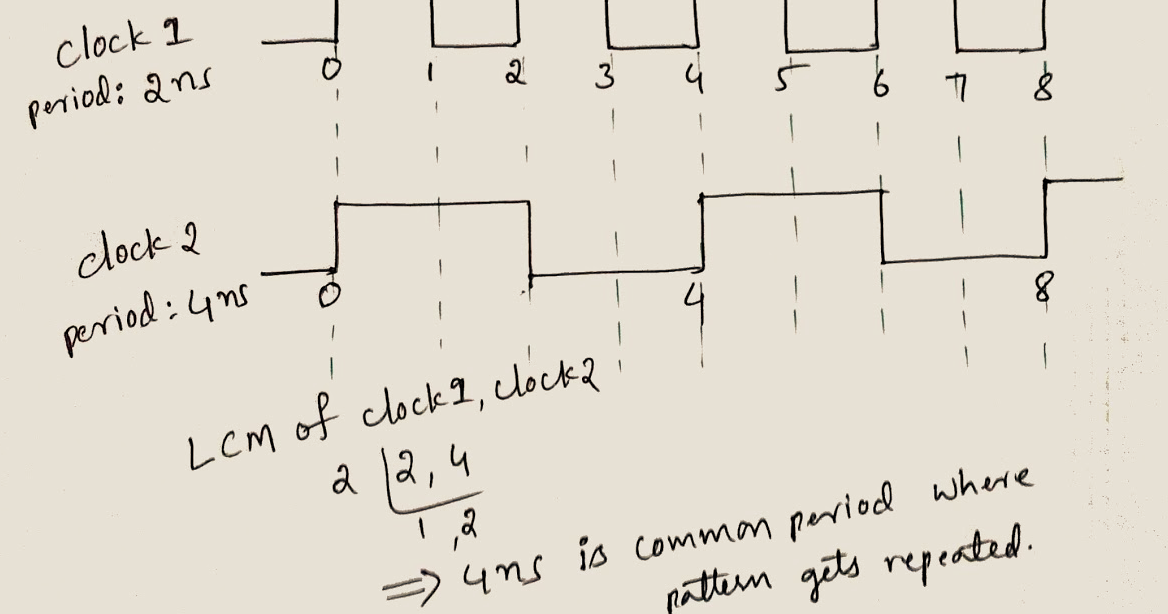 clock 1
period: 2ns
0 1 2 3 4 5 6 7 8
clock 2
period: 4ns
0 4 8
LCM of clock1, clock2
2 2, 4
1, 2
=> 4ns is common period where
pattern gets repeated.